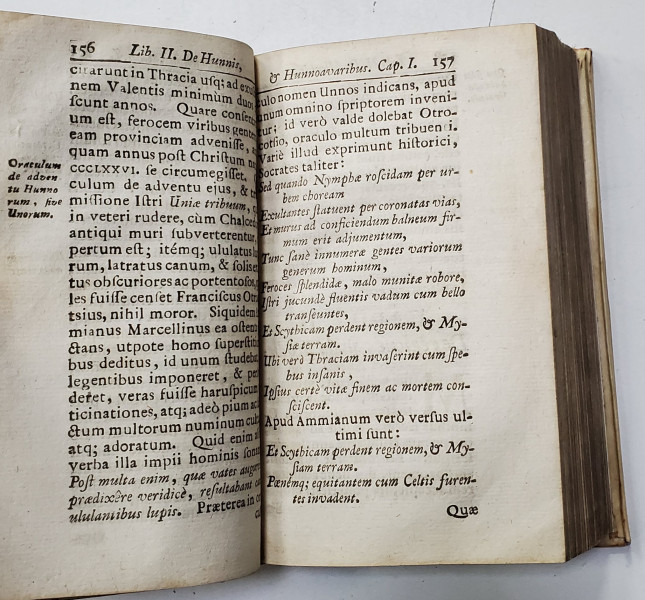 156 Lib. II. De Hunnis,
citarunt in Thracia usq; ad
nem Valentis minimùm duo
ſcunt annos. Quare
um eſt, ferocem viribus
eam provinciam adveniſſe,
quam annus poſt Chriſtum
CCCLXXVI. ſe circumegiſſet.
culum de adventu ejus, &
miſſione Iſtri Uniæ tribuum,
in veteri rudere, cùm
antiqui muri ſubverterentur,
pertum eſt; itémq; ululatus
rum, latratus canum, & ſolis
tus obſcuriores ac portentoſos,
les fuiſſe cenſet Franciſcus
tsius, nihil moror. Siquidem
mianus Marcellinus ea
ctans, utpote homo ſuperſtitio
bus deditus, id unum
legentibus imponeret, &
deret, veras fuiſſe haruſpicum
ticinationes, atq; adeò pium
ctum multorum numinum
atq; adoratum. Quid enim
verba illa impii hominis
Poſt multa enim, quæ vates
prædixêre veridicè, reſultabant
ululantibus lupis. Præterea in
Oraculum
de adven
tu Hunno
rum, ſive
Unorum.
& Hunnoavaribus. Cap. I. 157
culo nomen Unnos indicans, apud
unum omnino ſcriptorem inveni-
tur; id verò valde dolebat Otro-
cotſio, oraculo multum tribuen i.
Variè illud exprimunt hiſtorici,
Socrates taliter:
Sed quando Nymphæ roſcidam per ur-
bem choream
Exultantes ſtatuent per coronatas vias,
Et murus ad conficiendum balneum fir-
mum erit adjumentum,
Tunc ſanè innumeræ gentes variorum
generum hominum,
Feroces ſplendidæ, malo munitæ robore,
Iſtri jucundè fluentis vadum cum bello
tranſeuntes,
Et Scythicam perdent regionem, & My-
ſiæ terram.
Ubi verò Thraciam invaſerint cum ſpe-
bus inſanis,
Ipſius certè vitæ finem ac mortem con-
ſciſcent.
Apud Ammianum verò verſus ul-
timi ſunt:
Et Scythicam perdent regionem, & My-
ſiam terram.
Pænemq; equitantem cum Celtis furen-
tes invadent.
Quæ